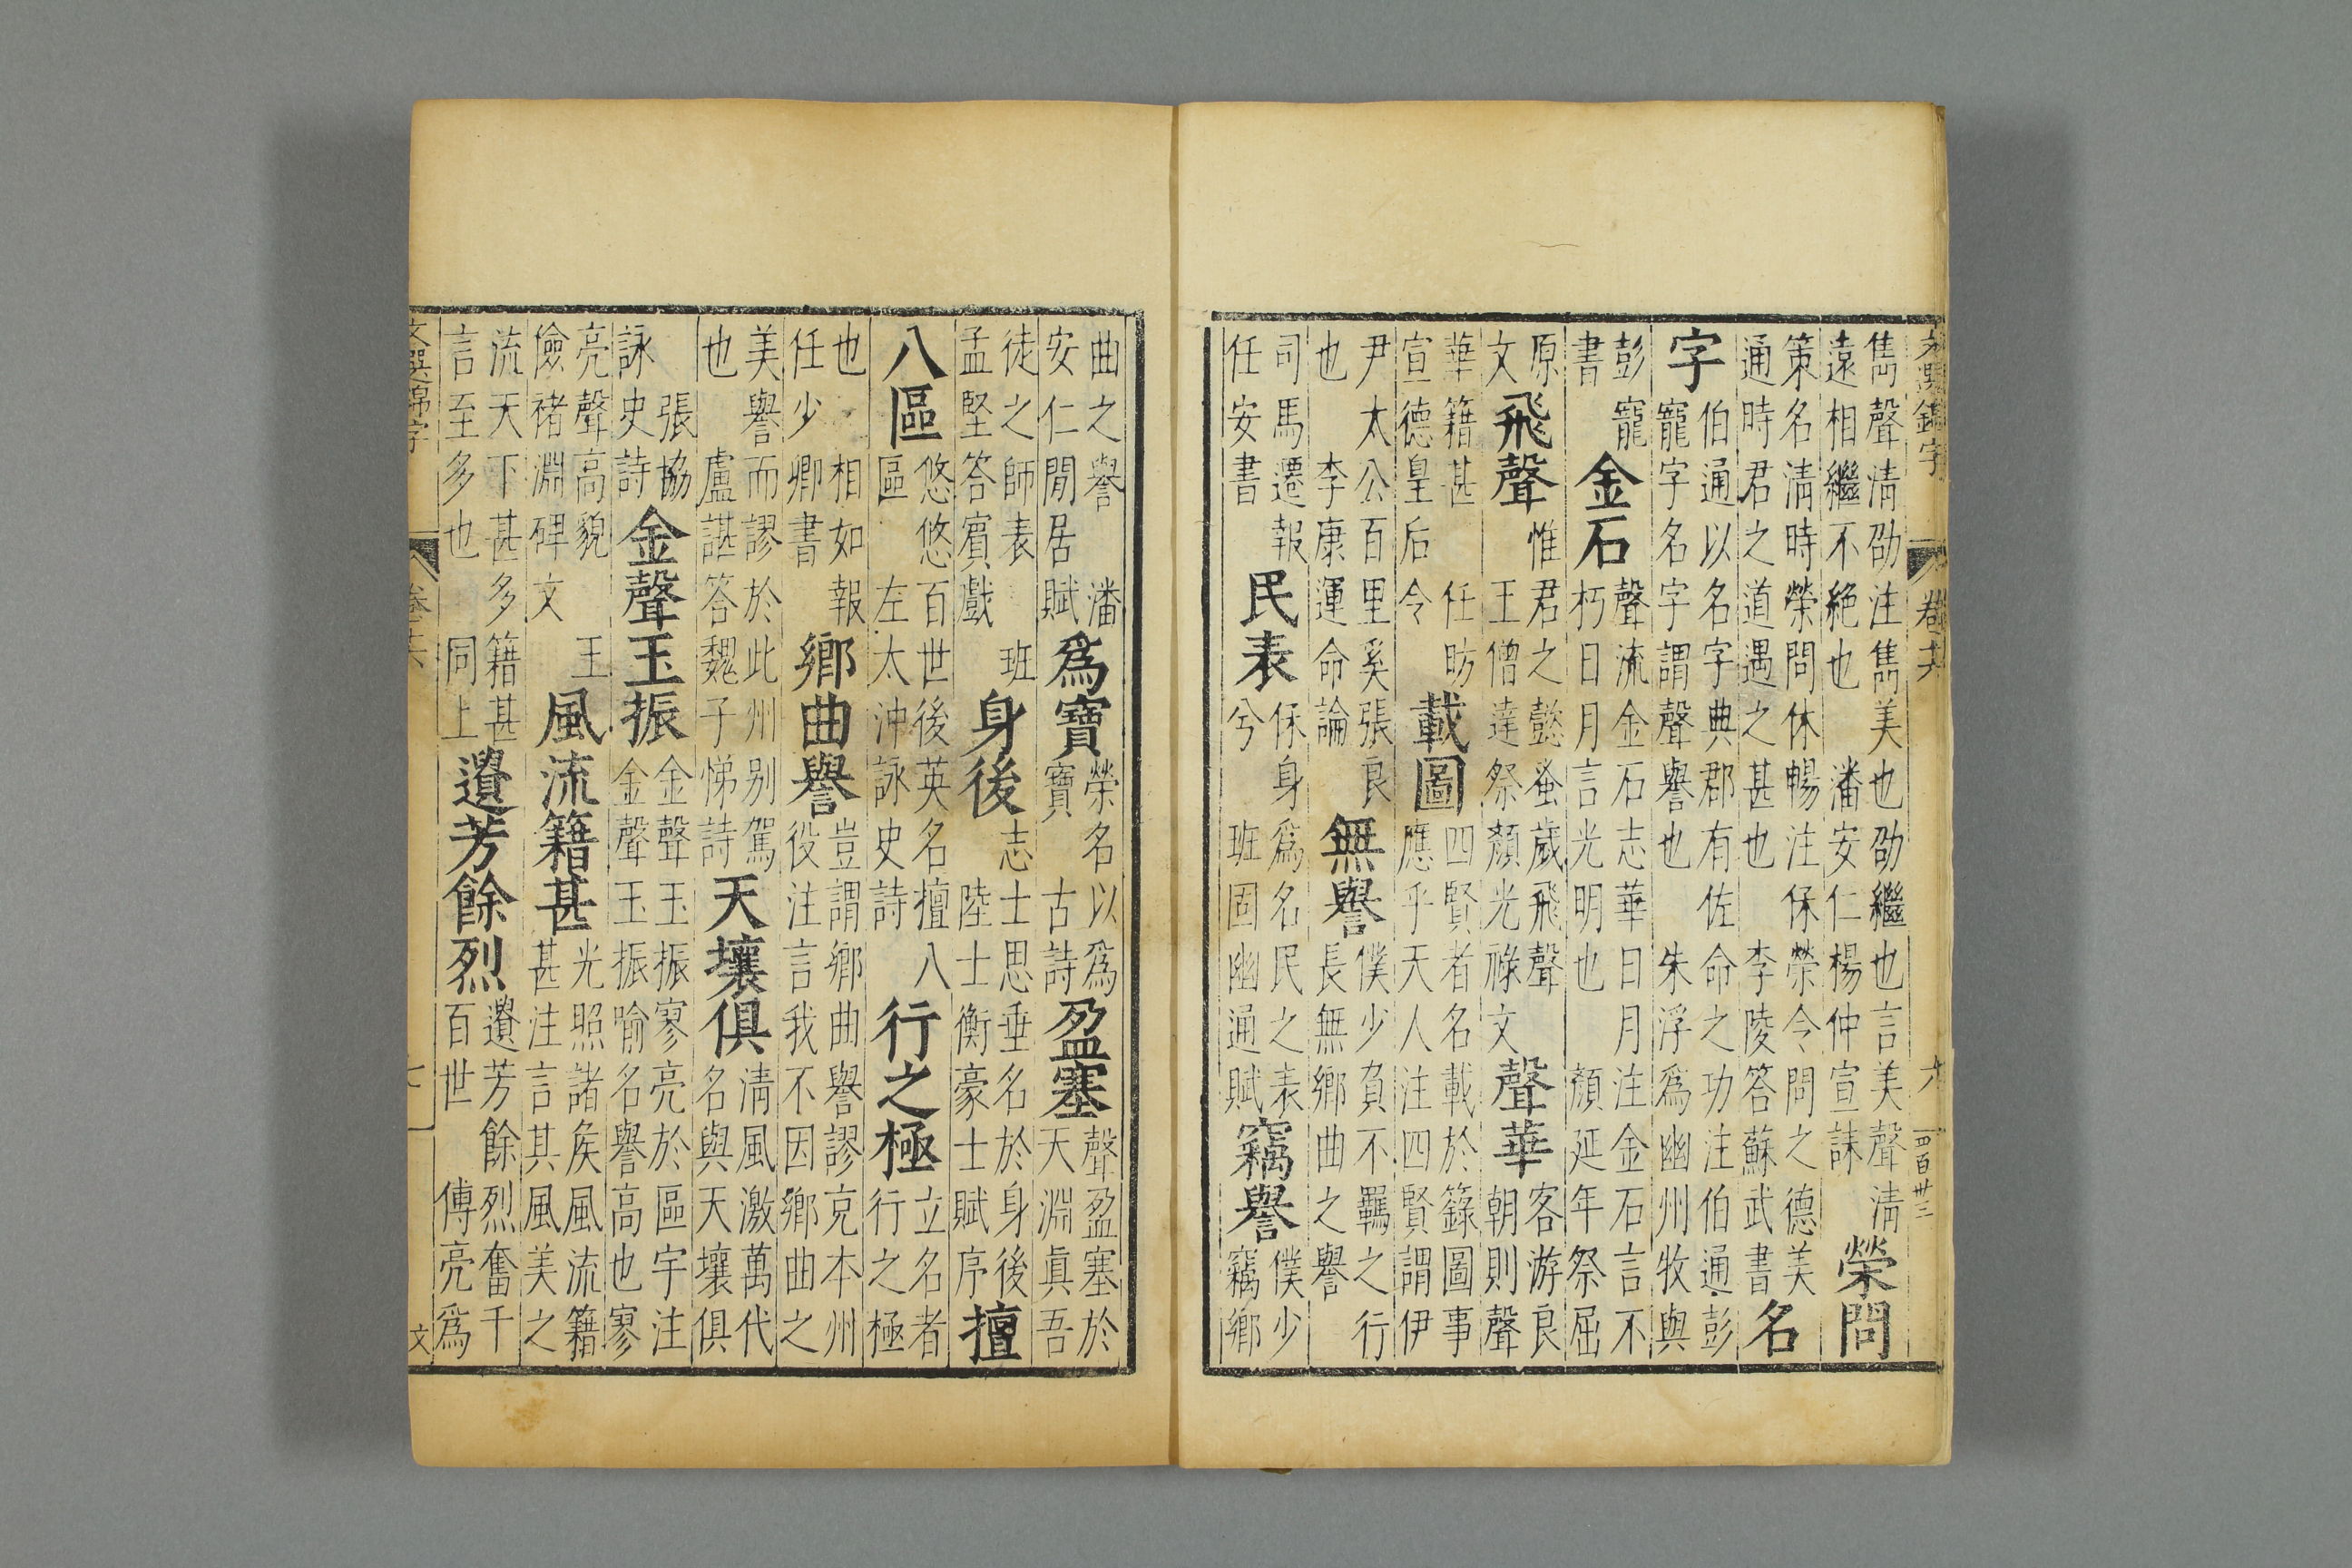 文選錦字 卷十六 六 四百卅三
雋聲清劭注雋美也劭繼也言美聲清
遠相繼不絶也 潘安仁楊仲宣誄
榮問
策名清時榮問休暢注休榮令問之德美
通時君之道遇之甚也 李陵答蘇武書
名
字
伯通以名字典郡有佐命之功注伯通彭
寵字名字謂聲譽也 朱浮爲幽州牧與
彭寵
書
金石
聲流金石志華日月注金石言不
朽日月言光明也 顏延年祭屈
原
文
飛聲
惟君之懿蚤歲飛聲
王僧達祭顏光祿文
聲華
客游良
朝則聲
華籍甚 任昉
宣德皇后令
載圖
四賢者名載於籙圖事
應乎天人注四賢謂伊
尹太公百里奚張良
也 李康運命論
無譽
僕少負不羈之行
長無鄉曲之譽
司馬遷報
任安書
民表
保身爲名民之表
兮 班固幽通賦
竊譽
僕少
竊鄉
曲之譽 潘
安仁閒居賦
爲寶
榮名以爲
寶 古詩
盈塞
聲盈塞於
天淵眞吾
徒之師表 班
孟堅答賓戲
身後
志士思垂名於身後
陸士衡豪士賦序
擅
八區
悠悠百世後英名擅八
區 左太沖詠史詩
行之極
立名者
行之極
也 相如報
任少卿書
鄉曲譽
豈謂鄉曲譽謬充本州
役注言我不因鄉曲之
美譽而謬於此州别駕
也 盧諶答魏子悌詩
天壤俱
清風激萬代
名與天壤俱
張協
詠史詩
金聲玉振
金聲玉振寥亮於區宇注
金聲玉振喻名譽高也寥
亮聲高貌 王
儉褚淵碑文
風流籍甚
光照諸侯風流籍
甚注言其風美之
流天下甚多籍甚
言至多也 同上
遺芳餘烈
遺芳餘烈奮千
百世 傅亮爲
文選錦字 卷十六 七 文